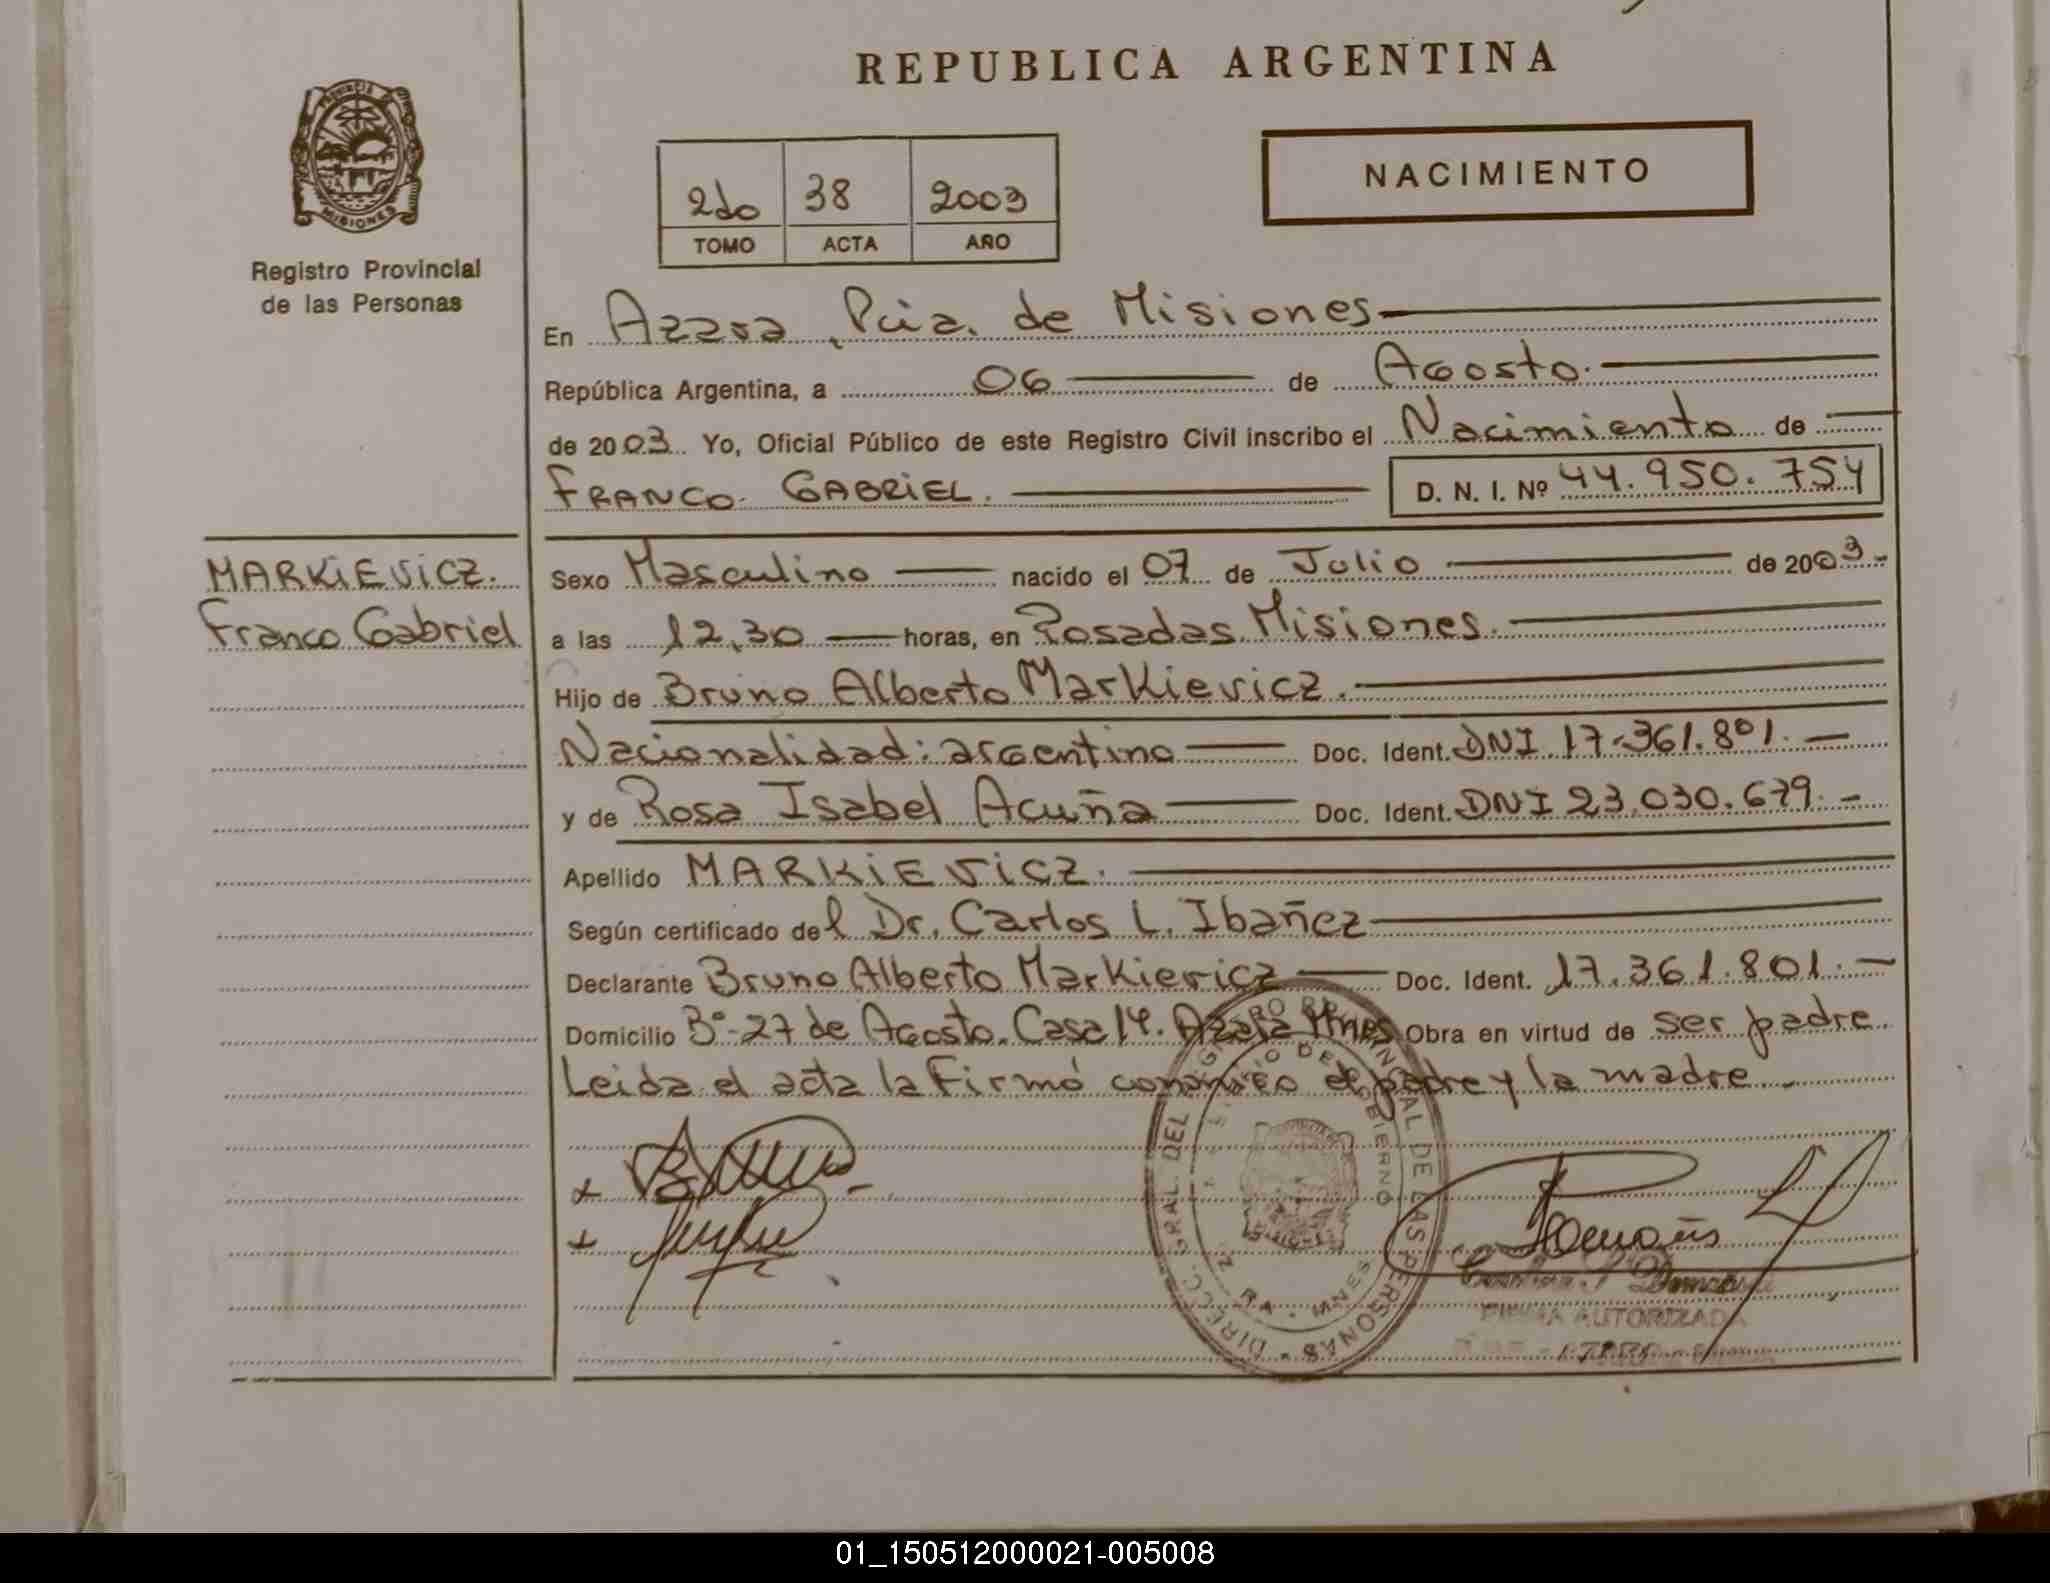 REPUBLICA ARGENTINA
PROVINCIA DE
MISIONES
Registro Provincial
de las Personas
2do 38 2003
TOMO ACTA AÑO
NACIMIENTO
En Azara, Pcia. de Misiones
República Argentina, a 06 de Agosto.
de 2003 Yo, Oficial Público de este Registro Civil inscribo el Nacimiento de
FRANCO GABRIEL. D. N. I. Nº 44.950.754
MARKIEVICZ.
Franco Gabriel
Sexo Masculino nacido el 07 de Julio de 2003
a las 12,30 horas, en Posadas Misiones.
Hijo de Bruno Alberto Markievicz.
Nacionalidad: argentino Doc. Ident. DNI 17.361.801.
y de Rosa Isabel Acuña Doc. Ident. DNI 23.030.679.
Apellido MARKIEVICZ.
Según certificado del Dr. Carlos L. Ibañez
Declarante Bruno Alberto Markievicz Doc. Ident. 17.361.801.
Domicilio Bº 27 de Agosto. Casa 14. Azara Mnes Obra en virtud de ser padre
Leida el acta la firmó conmigo el padre y la madre
DIRECC. GRAL. DEL REGISTRO PROVINCIAL DE LAS PERSONAS
MINISTERIO DE GOBIERNO
MNES R.A.
FIRMA AUTORIZADA
01_150512000021-005008